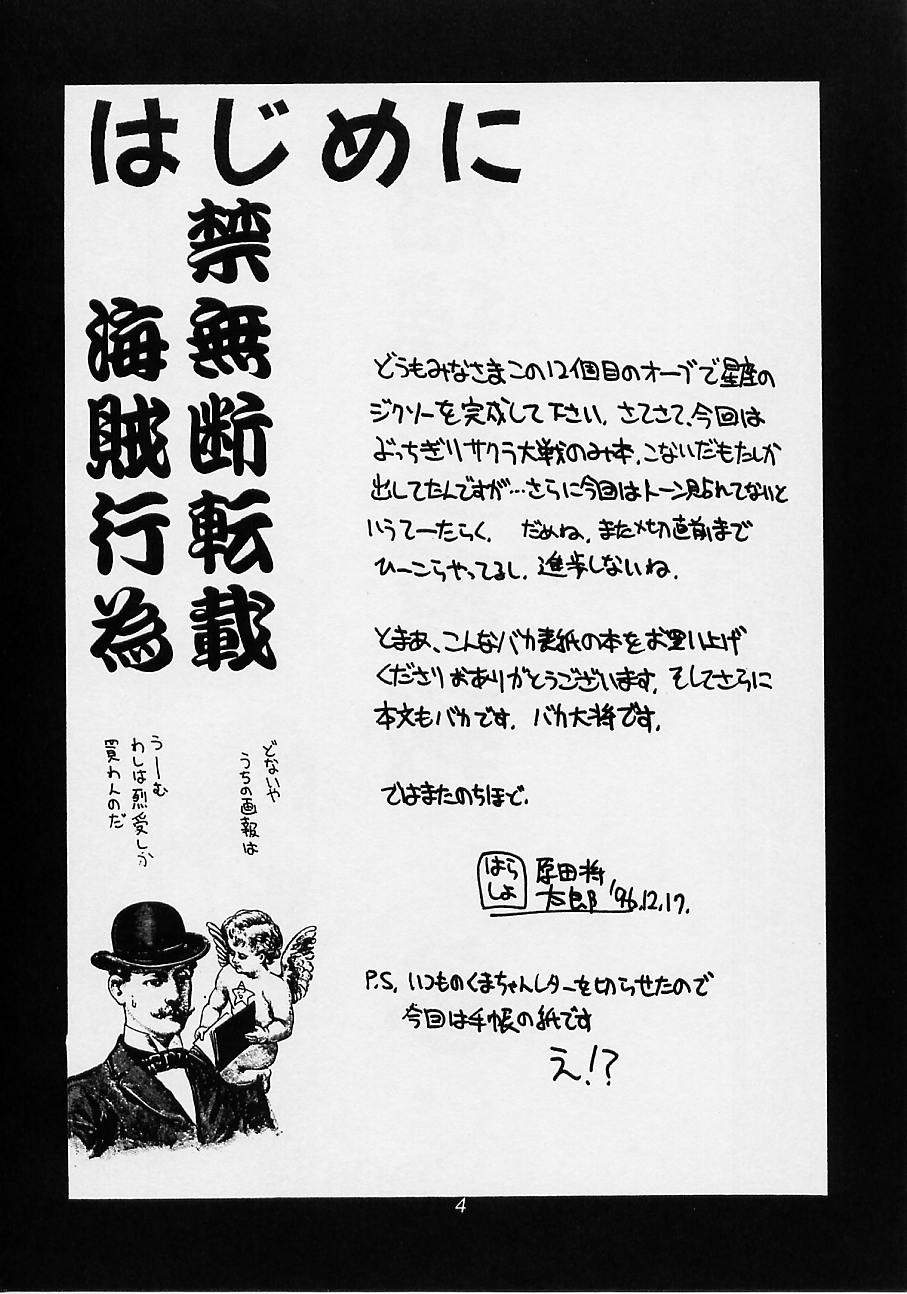 はじめに
禁無断転載
海賊行為
どうもみなさまこの12個目のオーブで星座の
ジクソーを完成して下さい。さてさて、今回は
ぶっちぎりサクラ大戦のみ本、こないだもたしか
出してたんですが…さらに今回はトーン貼れてないと
いうてーたらく。だめね、また〆切直前まで
ひーこらやってるし、進歩しないね。
とまあ、こんなバカ表紙の本をお買い上げ
くださりおありがとうございます。そしてさらに
本文もバカです。バカ大将です。
ではまたのちほど。
はらしょ
原田将
太郎 '96.12.17.
P.S. いつものくまちゃんレターを切らせたので
今回は手帳の紙です
え!?
どないや
うちの画報は
うーむ
わしは烈愛しか
買わんのだ
4